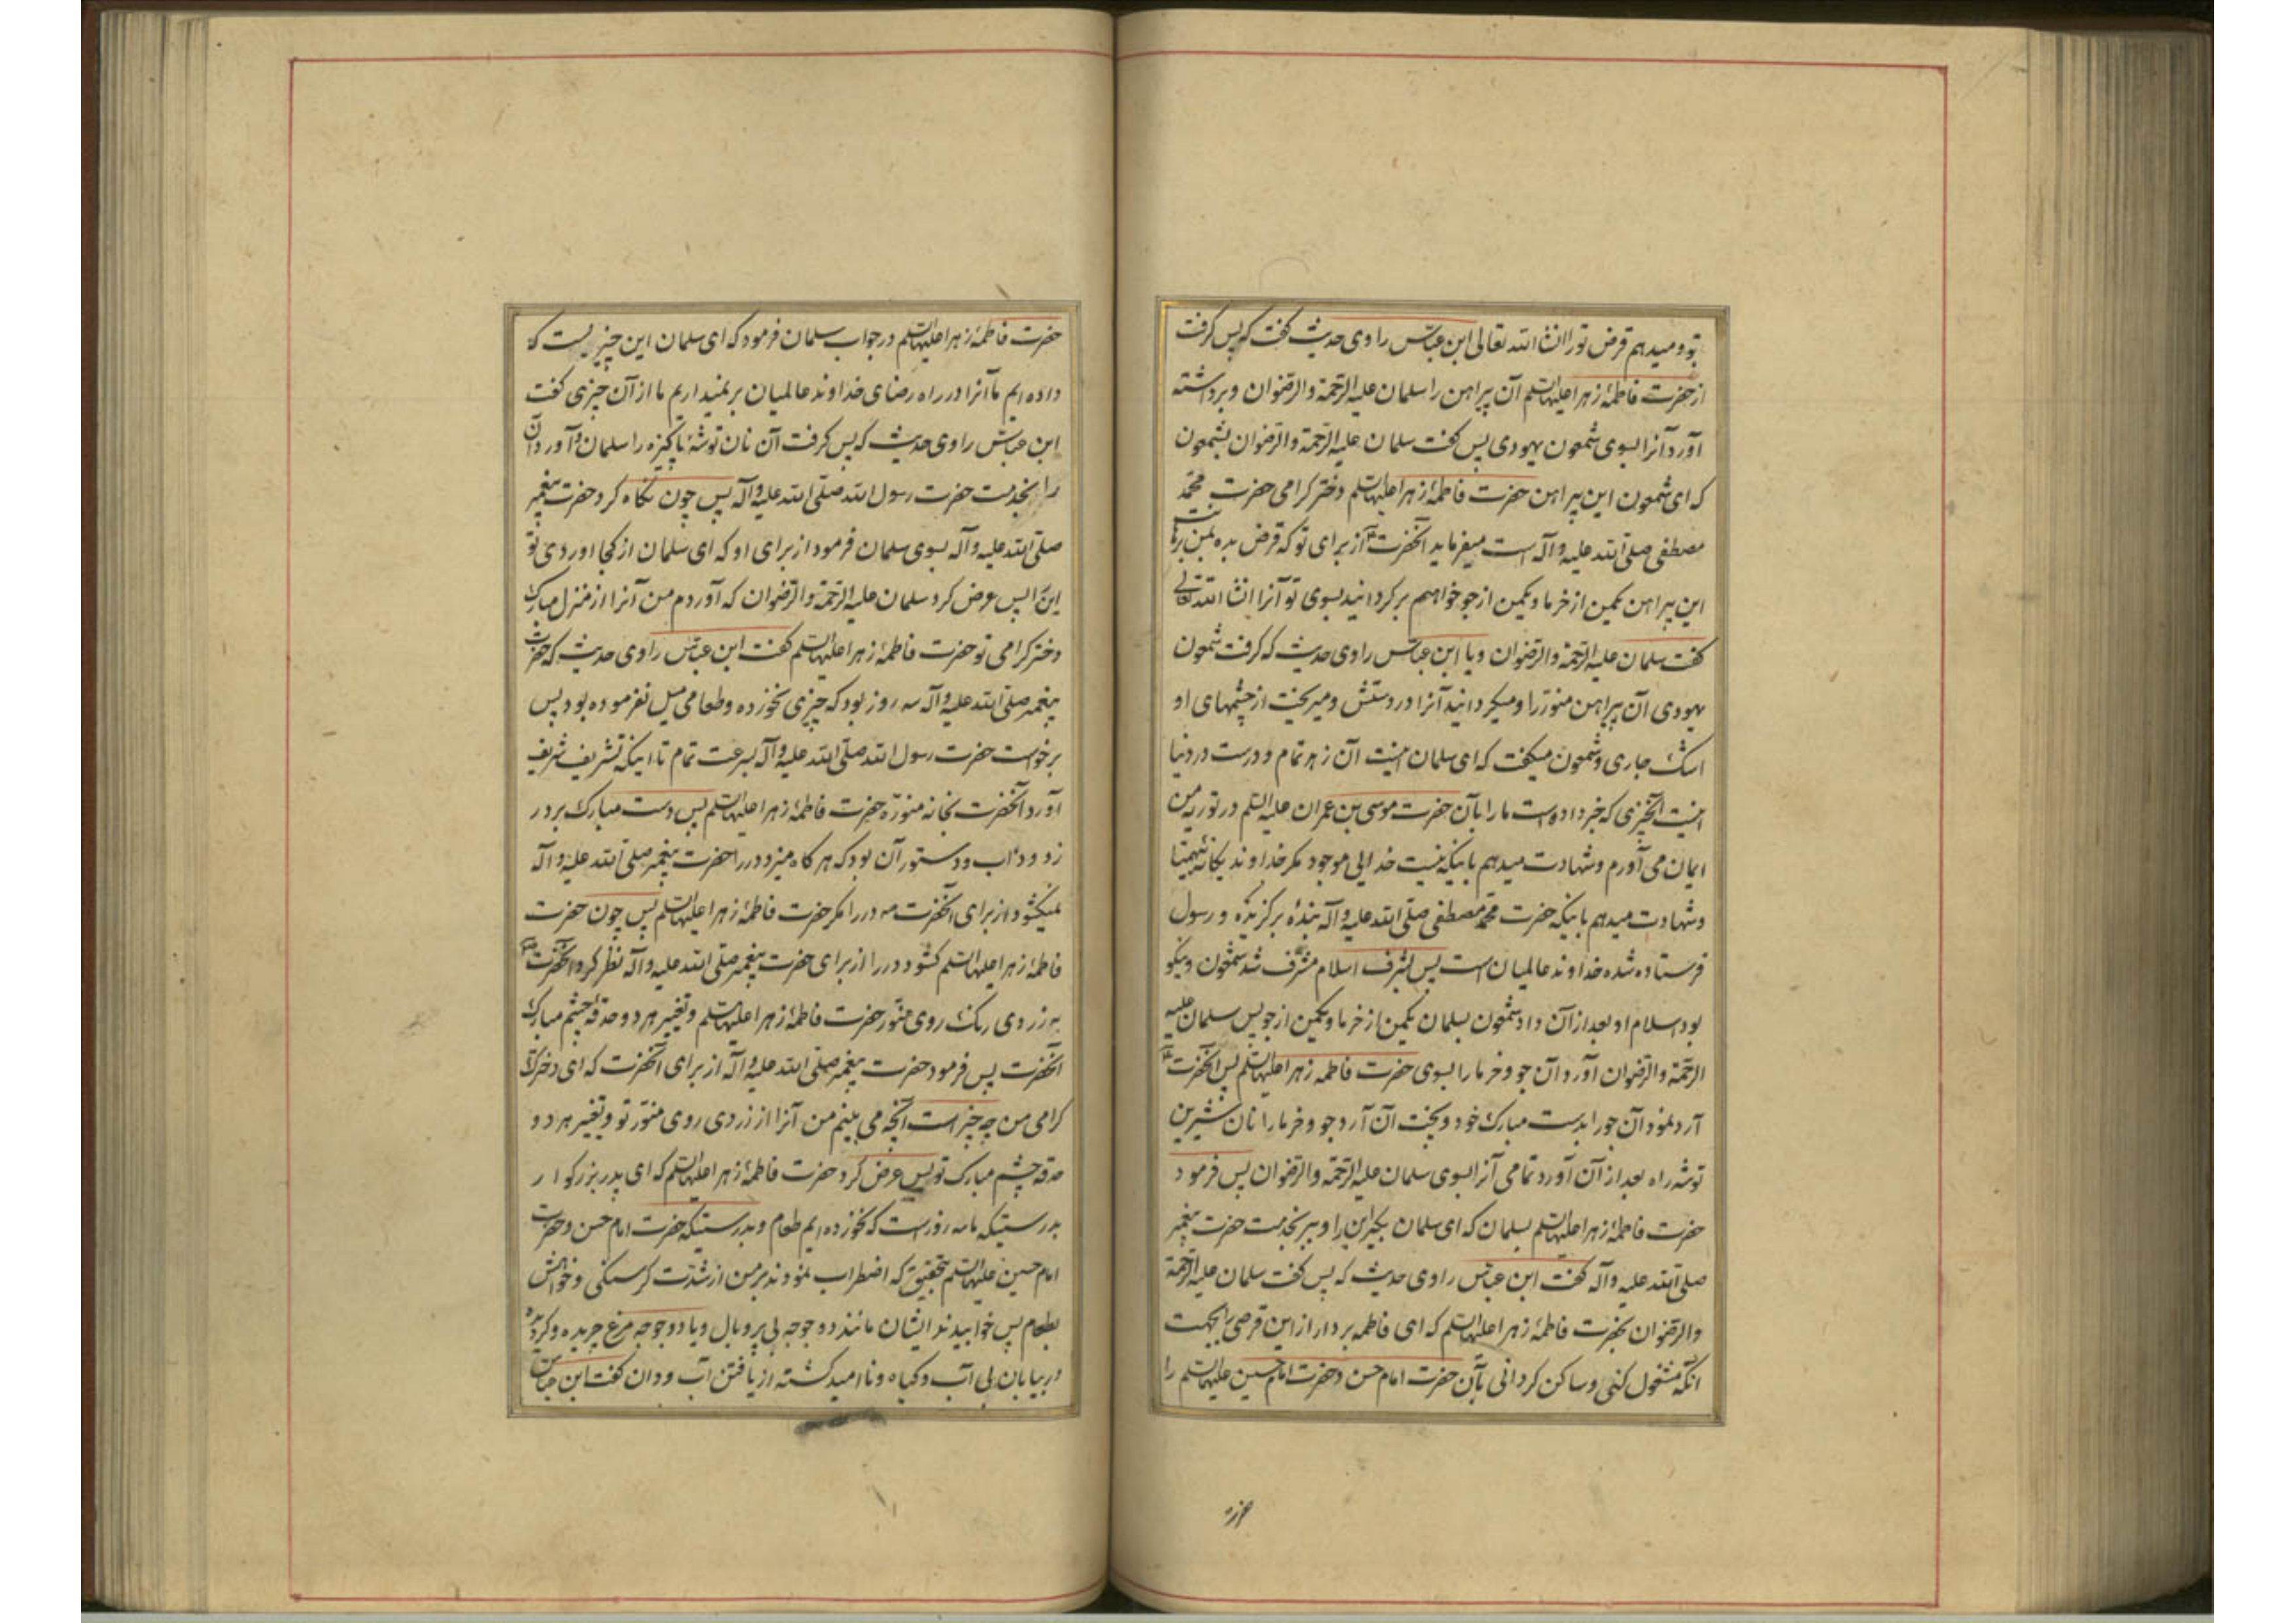 تو و میدهم قرض تو را انشاء الله تعالی ابن عباس راوی حدیث گفت که پس گرفت
از حضرت فاطمهٔ زهرا علیها السلم آن پیراهن را سلمان علیه الرحمة والرضوان و برداشته
آورد آنرا بسوی شمعون یهودی پس گفت سلمان علیه الرحمة والرضوان بشمعون
که ای شمعون این پیراهن حضرت فاطمهٔ زهرا علیها السلم دختر گرامی حضرت محمد
مصطفی صلی الله علیه وآله است میفرماید آنحضرت از برای تو که قرض بده بمن
این پیراهن یکمن از خرما و یکمن از جو خواهم برگردانید بسوی تو آنرا انشاء الله تعالی
گفت سلمان علیه الرحمة والرضوان و یا ابن عباس راوی حدیث که گرفت شمعون
یهودی آن پیراهن منور را و میگردانید آنرا در دستش و میریخت از چشمهای او
اشک جاری و شمعون میگفت که ای سلمان اینست آن زهد تمام و درست در دنیا
اینست آنچیزی که خبر داده است ما را بآن حضرت موسی بن عمران علیه السلم در توریة من
ایمان می آورم و شهادت میدهم باینکه نیست خدایی موجود مگر خداوند یگانه بیهمتا
و شهادت میدهم باینکه حضرت محمد مصطفی صلی الله علیه وآله بندهٔ برگزیده و رسول
فرستاده شده خداوند عالمیان است پس بشرف اسلام مشرف شد شمعون و نیکو
بود اسلام او بعد از آن داد شمعون بسلمان یکمن از خرما و یکمن از جو پس سلمان علیه
الرحمة والرضوان آورد آن جو و خرما را بسوی حضرت فاطمه زهرا علیها السلم پس آنحضرت
آرد نمود آن جو را بدست مبارک خود و پخت آن آرد جو و خرما را نان شیرین
توشه راه بعد از آن آورد تمامی آنرا بسوی سلمان علیه الرحمة والرضوان پس فرمود
حضرت فاطمهٔ زهرا علیها السلم بسلمان که ای سلمان بگیر این را و ببر بخدمت حضرت پیغمبر
صلی الله علیه وآله گفت ابن عباس راوی حدیث که پس گفت سلمان علیه الرحمة
والرضوان بحضرت فاطمهٔ زهرا علیها السلم که ای فاطمه بردار از این قرصی بجهت
آنکه مشغول کنی و ساکن گردانی بآن حضرت امام حسن و حضرت امام حسین علیهما السلم را
حضرت
حضرت فاطمهٔ زهرا علیها السلم در جواب سلمان فرمود که ای سلمان این چیزیست که
داده ایم ما آنرا در راه رضای خداوند عالمیان برنمیداریم ما از آن چیزی گفت
ابن عباس راوی حدیث که پس گرفت آن نان توشهٔ پاکیزه را سلمان و آورد آن
را بخدمت حضرت رسول الله صلی الله علیه وآله پس چون نگاه کرد حضرت پیغمبر
صلی الله علیه وآله بسوی سلمان فرمود از برای او که ای سلمان از کجا اوردی تو
این را پس عرض کرد سلمان علیه الرحمة والرضوان که آوردم من آنرا از منزل مبارک
دختر گرامی تو حضرت فاطمهٔ زهرا علیها السلم گفت ابن عباس راوی حدیث که حضرت
پیغمبر صلی الله علیه وآله سه روز بود که چیزی نخورده و طعامی میل نفرموده بود پس
برخواست حضرت رسول الله صلی الله علیه وآله بسرعت تمام تا اینکه تشریف شریف
آورد آنحضرت بخانه منورهٔ حضرت فاطمهٔ زهرا علیها السلم پس دست مبارک بر در
زد و داب و دستور آن بود که هر گاه میزد در را حضرت پیغمبر صلی الله علیه وآله
نمیگشود از برای آنحضرت در را مگر حضرت فاطمهٔ زهرا علیها السلم پس چون حضرت
فاطمهٔ زهرا علیها السلم گشود در را از برای حضرت پیغمبر صلی الله علیه وآله نظر کرد آنحضرت
به زردی رنگ روی منور حضرت فاطمهٔ زهرا علیها السلم و تغییر هر دو حدقهٔ چشم مبارک
آنحضرت پس فرمود حضرت پیغمبر صلی الله علیه وآله از برای آنحضرت که ای دختر
گرامی من چه چیز است آنچه می بینم من آنرا از زردی روی منور تو و تغییر هر دو
حدقه چشم مبارک تو پس عرض کرد حضرت فاطمهٔ زهرا علیها السلم که ای پدر بزرگوار
بدرستیکه ما سه روز است که نخورده ایم طعام و بدرستیکه حضرت امام حسن و حضرت
امام حسین علیهما السلم بتحقیق که اضطراب نمودند بر من از شدت گرسنگی و خواهش
بطعام پس خوابیدند ایشان مانند دو جوجه بی پر و بال و یا دو جوجه مرغ
در بیابان بی آب و گیاه و ناامید گشته از یافتن آب و دان گفت ابن عباس